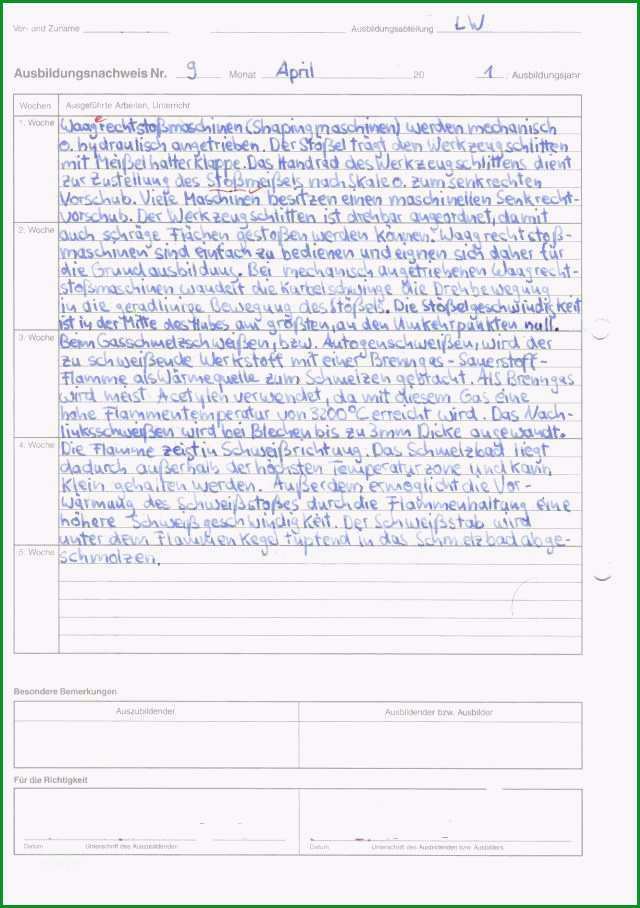 Vor- und Zuname Ausbildungsabteilung LW
Ausbildungsnachweis Nr. 9 Monat April 20 1 Ausbildungsjahr
Wochen Ausgeführte Arbeiten, Unterricht
1. Woche Waagrechtstoßmaschinen (Shapingmaschinen) werden mechanisch
o. hydraulisch angetrieben. Der Stößel trägt den Werkzeugschlitten
mit Meißelhalterklappe. Das Handrad des Werkzeugschlittens dient
zur Zustellung des Stoßmeißels nach Skale o. zum senkrechten
Vorschub. Viele Maschinen besitzen einen maschinellen Senkrecht-
vorschub. Der Werkzeugschlitten ist drehbar angeordnet, damit
2. Woche auch schräge Flächen gestoßen werden können. Waagrechtstoß-
maschinen sind einfach zu bedienen und eignen sich daher für
die Grundausbildung. Bei mechanisch angetriebenen Waagrecht-
stoßmaschinen wandelt die Kurbelschwinge die Drehbewegung
in die geradlinige Bewegung des Stößels. Die Stößelgeschwindigkeit
ist in der Mitte des Hubes am größten, an den Umkehrpunkten null.
3. Woche Beim Gasschmelzschweißen, bzw. Autogenschweißen, wird der
zu schweißende Werkstoff mit einer Brenngas-Sauerstoff-
Flamme als Wärmequelle zum Schmelzen gebracht. Als Brenngas
wird meist Acetylen verwendet, da mit diesem Gas eine
hohe Flammentemperatur von 3200°C erreicht wird. Das Nach-
linksschweißen wird bei Blechen bis zu 3mm Dicke angewandt.
4. Woche Die Flamme zeigt in Schweißrichtung. Das Schmelzbad liegt
dadurch außerhalb der höchsten Temperaturzone und kann
klein gehalten werden. Außerdem ermöglicht die Vor-
wärmung des Schweißstoßes durch die Flammenhaltung eine
höhere Schweißgeschwindigkeit. Der Schweißstab wird
unter dem Flammenkegel tupfend in das Schmelzbad abge-
5. Woche schmolzen.
Besondere Bemerkungen
Auszubildender Ausbildender bzw. Ausbilder
Für die Richtigkeit
Datum Unterschrift des Auszubildenden Datum Unterschrift des Ausbildenden bzw. Ausbilders